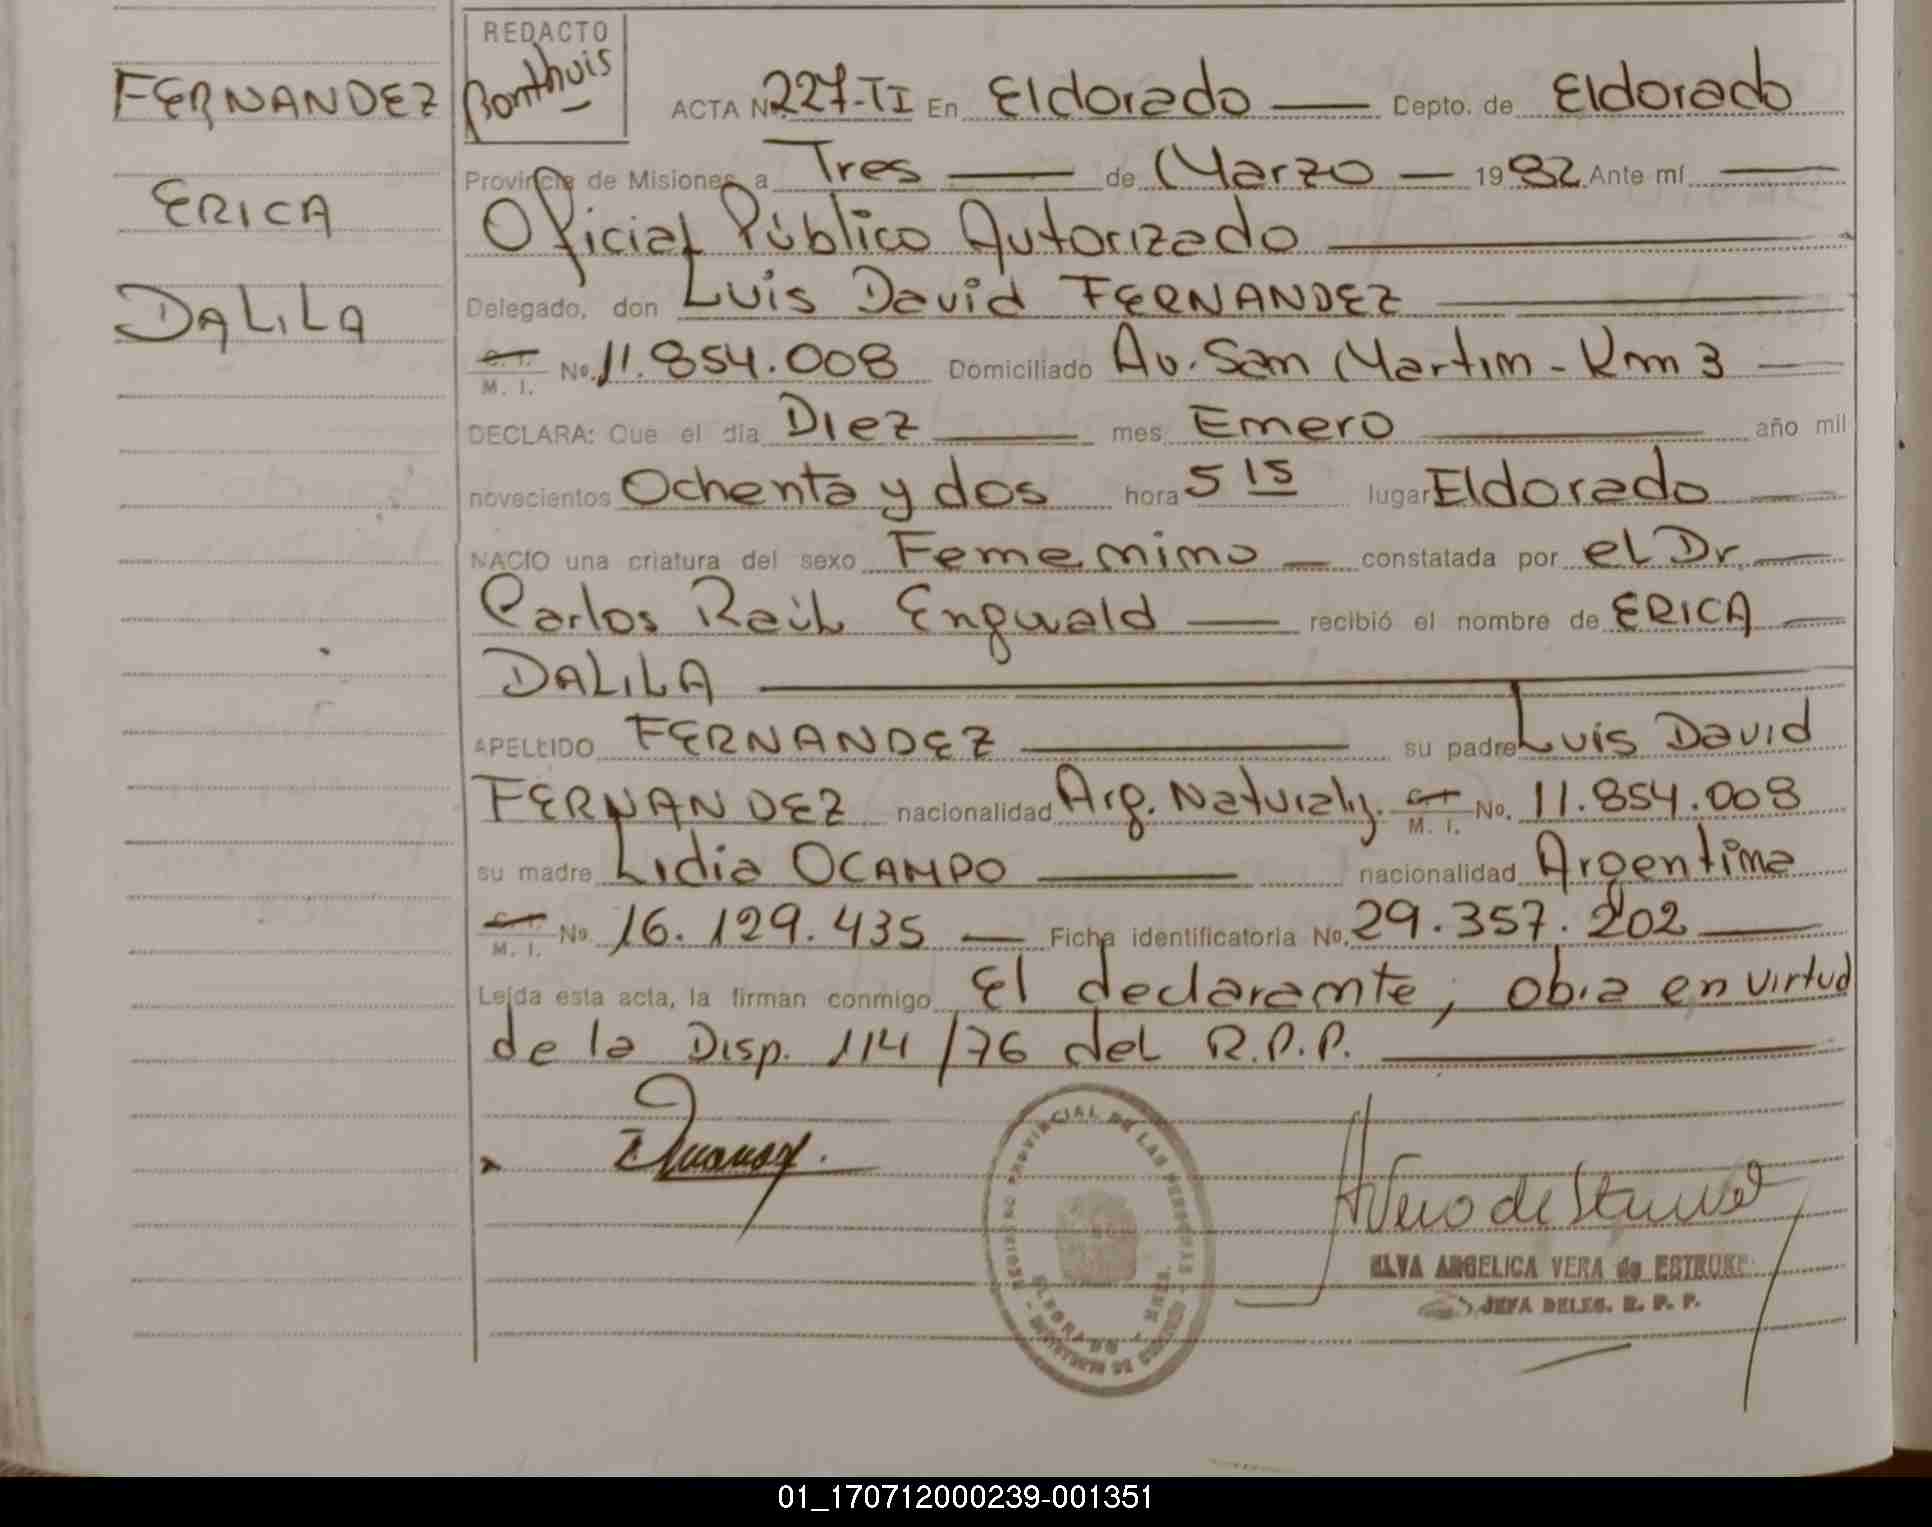 REDACTO
Bonthuis
FERNANDEZ
ERICA
DALILA
ACTA Nº 227-TI En Eldorado Depto. de Eldorado
Provincia de Misiones, a Tres de Marzo 1982 Ante mí
Oficial Público Autorizado
Delegado, don Luis David FERNANDEZ
C. I. M. I. No. 11.854.008 Domiciliado Av. San Martin - Km 3
DECLARA: Que el día Diez mes Enero año mil
novecientos Ochenta y dos hora 5 15 lugar Eldorado
NACIO una criatura del sexo Femenino constatada por el Dr.
Carlos Raúl Engwald recibió el nombre de ERICA
DALILA
APELLIDO FERNANDEZ su padre Luis David
FERNANDEZ nacionalidad Arg. Naturaliz. C.I. M. I. No. 11.854.008
su madre Lidia OCAMPO nacionalidad Argentina
C.I. M. I. No. 16.129.435 Ficha identificatoria No. 29.357.202
Leída esta acta, la firman conmigo El declarante, obra en virtud
de la Disp. 114/76 del R.P.P.
REGISTRO PROVINCIAL DE LAS PERSONAS
ELDORADO
ELVA ANGELICA VERA de ESTRUKE
JEFA DELEG. R. P. P.
01_170712000239-001351